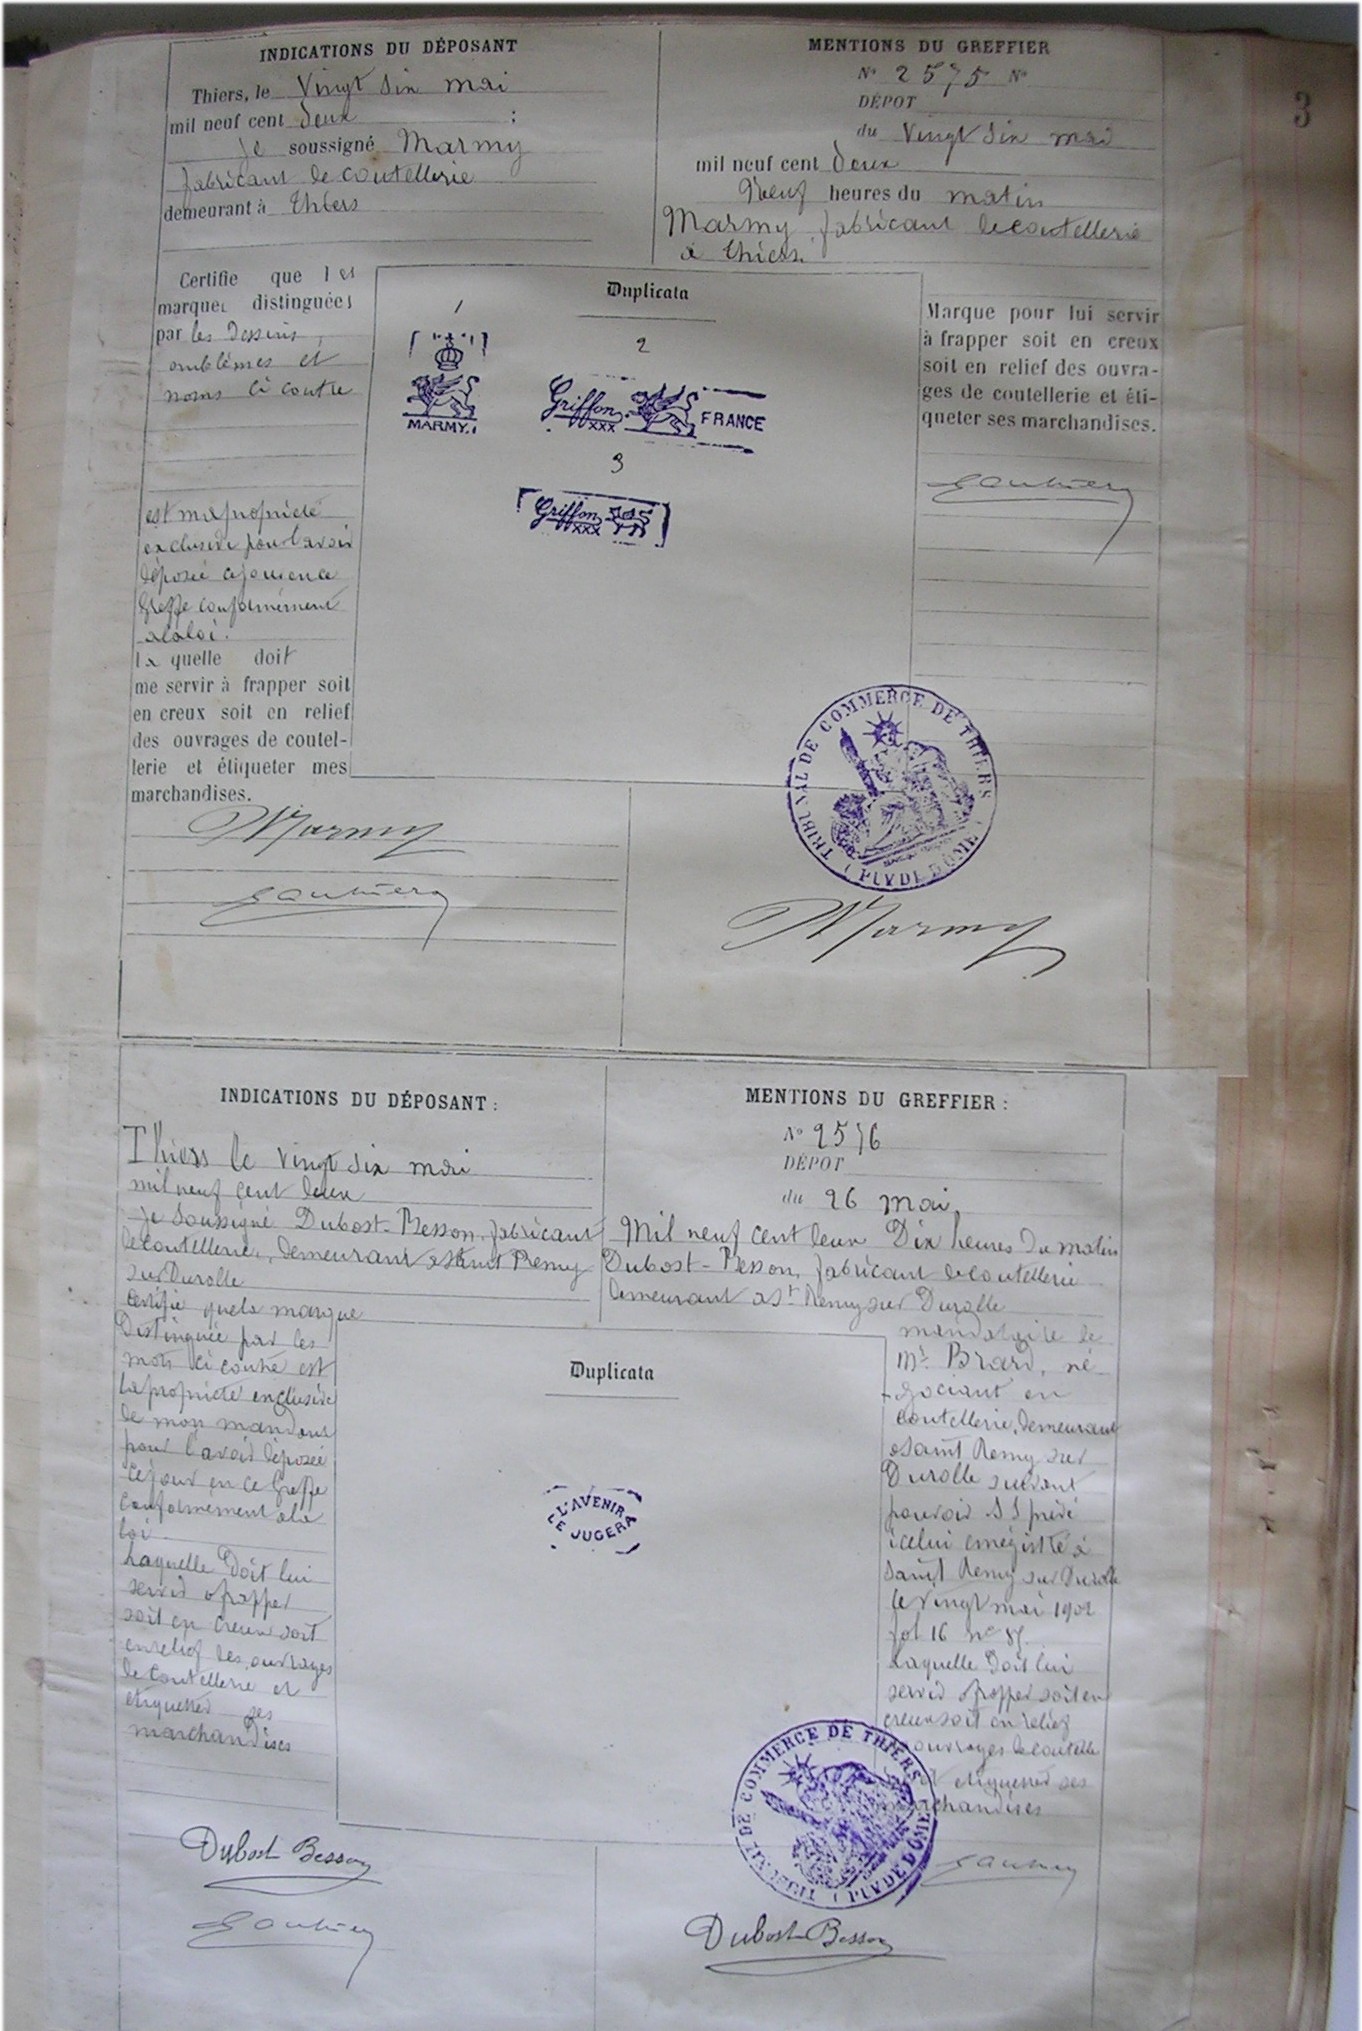 3
INDICATIONS DU DÉPOSANT
Thiers, le Vingt Six mai
mil neuf cent deux ;
je soussigné Marmy
fabricant de coutellerie
demeurant à Thiers
Certifie que les
marques distinguées
par les dessins,
emblêmes et
noms ci contre
est ma propriété
exclusive pour l'avoir
déposée ce jour en ce
Greffe conformément
à la loi.
la quelle doit
me servir à frapper soit
en creux soit en relief
des ouvrages de coutel-
lerie et étiqueter mes
marchandises.
Marmy
MENTIONS DU GREFFIER
No 2575 No
DÉPOT
du Vingt Six mai
mil neuf cent deux
Neuf heures du matin
Marmy fabricant de coutellerie
à Thiers.
Duplicata
1
MARMY.
2
Griffon
XXX
FRANCE
3
Griffon
XXX
Marque pour lui servir
à frapper soit en creux
soit en relief des ouvra-
ges de coutellerie et éti-
queter ses marchandises.
TRIBUNAL DE COMMERCE DE THIERS
(PUY DE DOME)
Marmy
INDICATIONS DU DÉPOSANT :
Thiers le vingt six mai
mil neuf cent deux
je soussigné Dubost-Besson, fabricant
de coutellerie, demeurant à Saint Remy
sur Durolle
certifie que la marque
Distinguée par les
mots ci contre est
la propriété exclusive
de mon mandant
pour l'avoir déposée
ce jour en ce Greffe
conformément à la
loi
Laquelle Doit lui
servir à frapper
soit en creux soit
en relief des ouvrages
de coutellerie et
etiqueter ses
marchandises
Dubost Besson
MENTIONS DU GREFFIER :
No 2576
DÉPOT
du 26 mai
Mil neuf cent deux Dix heures du matin
Dubost-Besson, fabricant de coutellerie
demeurant à St Remy sur Durolle
mandataire de
Mr. Brard, né-
gociant en
coutellerie, demeurant
à Saint Remy sur
Durolle suivant
pouvoir SS privé
icelui enregistré à
Saint Remy sur Durolle
le vingt mai 1902
fol 16 no
Laquelle Doit lui
servir à frapper soit en
creux soit en relief
ouvrages de coutelle
et etiqueter ses
marchandises
Duplicata
L'AVENIR
LE JUGERA
TRIBUNAL DE COMMERCE DE THIERS
(PUY DE DOME)
Dubost-Besson